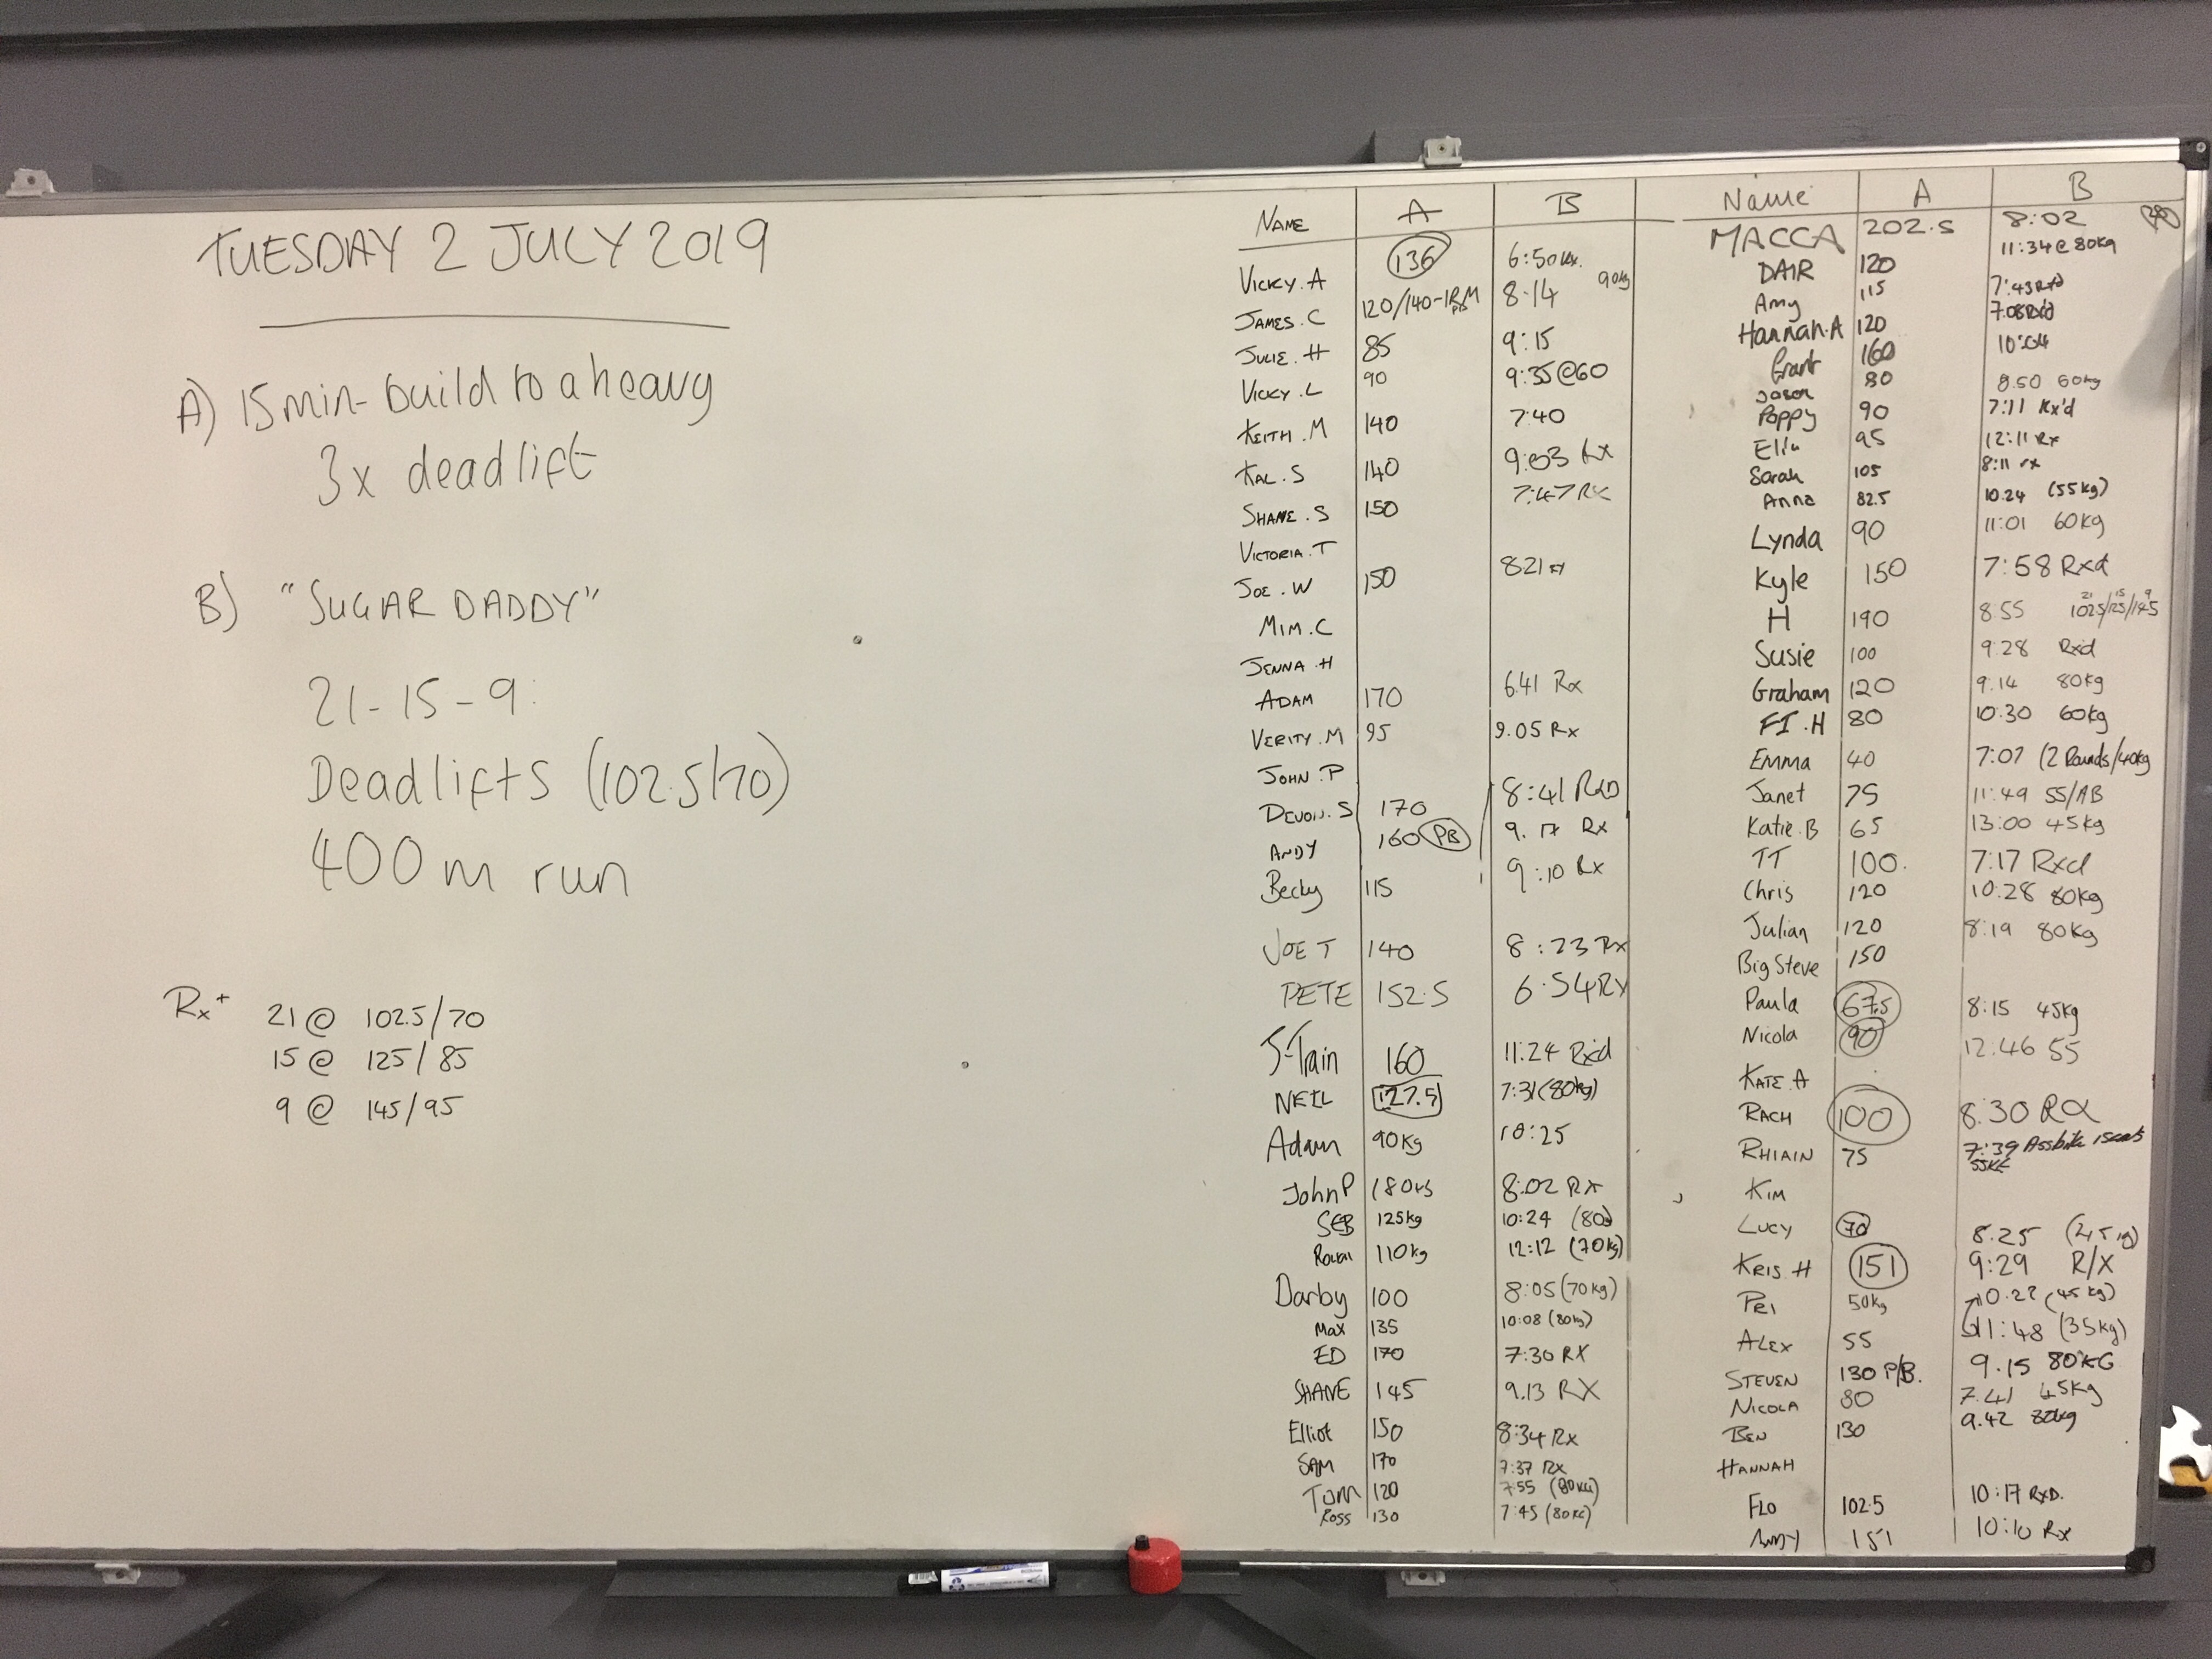 TUESDAY 2 JULY 2019
A) 15 min- build to a heavy
3x deadlift
B) "SUGAR DADDY"
21-15-9:
Deadlifts (102.5/70)
400 m run
Rx+ 21 @ 102.5/70
15 @ 125/85
9 @ 145/95
NAME A B
VICKY.A 136 6:50 Rx.
JAMES.C 120/140-1RM PB 8:14 90kg
JULIE.H 85 9:15
VICKY.L 90 9:35@60
KEITH.M 140 7:40
KAL.S 140 9:03 Rx
SHANE.S 150 7:47 RX
VICTORIA.T
JOE.W 150 821
MIM.C
JENNA.H
ADAM 170 6.41 Rx
VERITY.M 95 9.05 Rx
JOHN.P
DEVON.S 170 8:41 RXD
ANDY 160 PB 9.17 Rx
Becky 115 9:10 Rx
JOE T 140 8:23 Rx
PETE 152.5 6.54 RX
J-Train 160 11:24 Rx'd
NEIL 127.5 7:31 (80kg)
Adam 90Kg 10:25
John P 180 8:02 RX
SEB 125kg 10:24 (80)
110kg 12:12 (70kg)
Darby 100 8:05 (70kg)
Max 135 10:08 (80kg)
ED 170 7:30 RX
SHANE 145 9.13 RX
Elliot 150 8:34 Rx
SAM 170 7:37 RX
TOM 120 7:55 (80KG)
Ross 130 7:45 (80KG)
Name A B
MACCA 202.5 8:02
DAIR 120 11:34@80kg
Amy 115 7:43 Rxd
Hannah.A 120 7:08 Rx'd
Grant 160 10:04
Jason 80 8.50 60kg
Poppy 90 7:11 Rx'd
Ellie 95 12:11 Rx
Sarah 105 8:11 rx
Anna 82.5 10.24 (55kg)
Lynda 90 11:01 60kg
Kyle 150 7:58 Rxd
H 190 8.55 21 15 9 102.5/125/145
Susie 100 9:28 Rxd
Graham 120 9:14 80kg
FI.H 80 10:30 60kg
EMMA 40 7:07 (2 Rounds/40kg
Janet 75 11:49 55/AB
Katie.B 65 13:00 45kg
TT 100. 7:17 Rxd
Chris 120 10:28 80kg
Julian 120 8:19 80kg
Big Steve 150
Paula 67.5 8:15 45kg
Nicola 90 12.46 55
KATE.A
RACH 100 8.30 RX
RHIAIN 75 7:39 Assbike 55KG
KIM
LUCY 70 8.25 (45kg)
KRIS.H 151 9:29 R/X
PRI 50kg 10.27 (45kg)
ALEX 55 11:48 (35kg)
STEVEN 130 P/B. 9.15 80KG
NICOLA 80 7.41 45kg
BEN 130 9.42 80kg
HANNAH
FLO 102.5 10:17 RXD.
ANDY 151 10:10 Rx